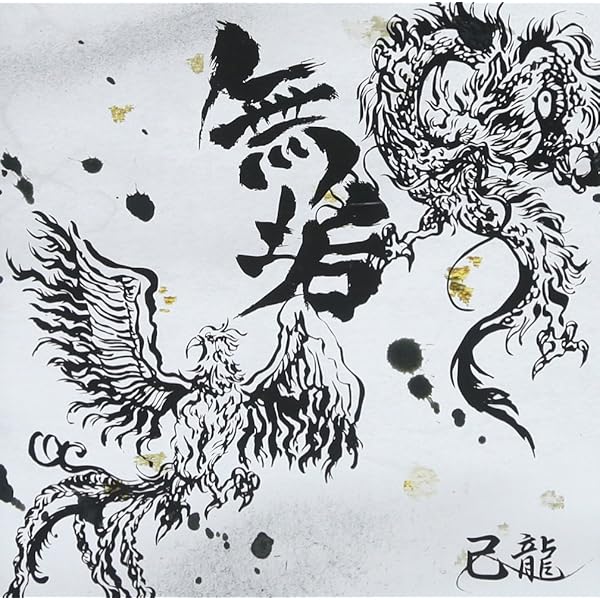 無垢
己龍